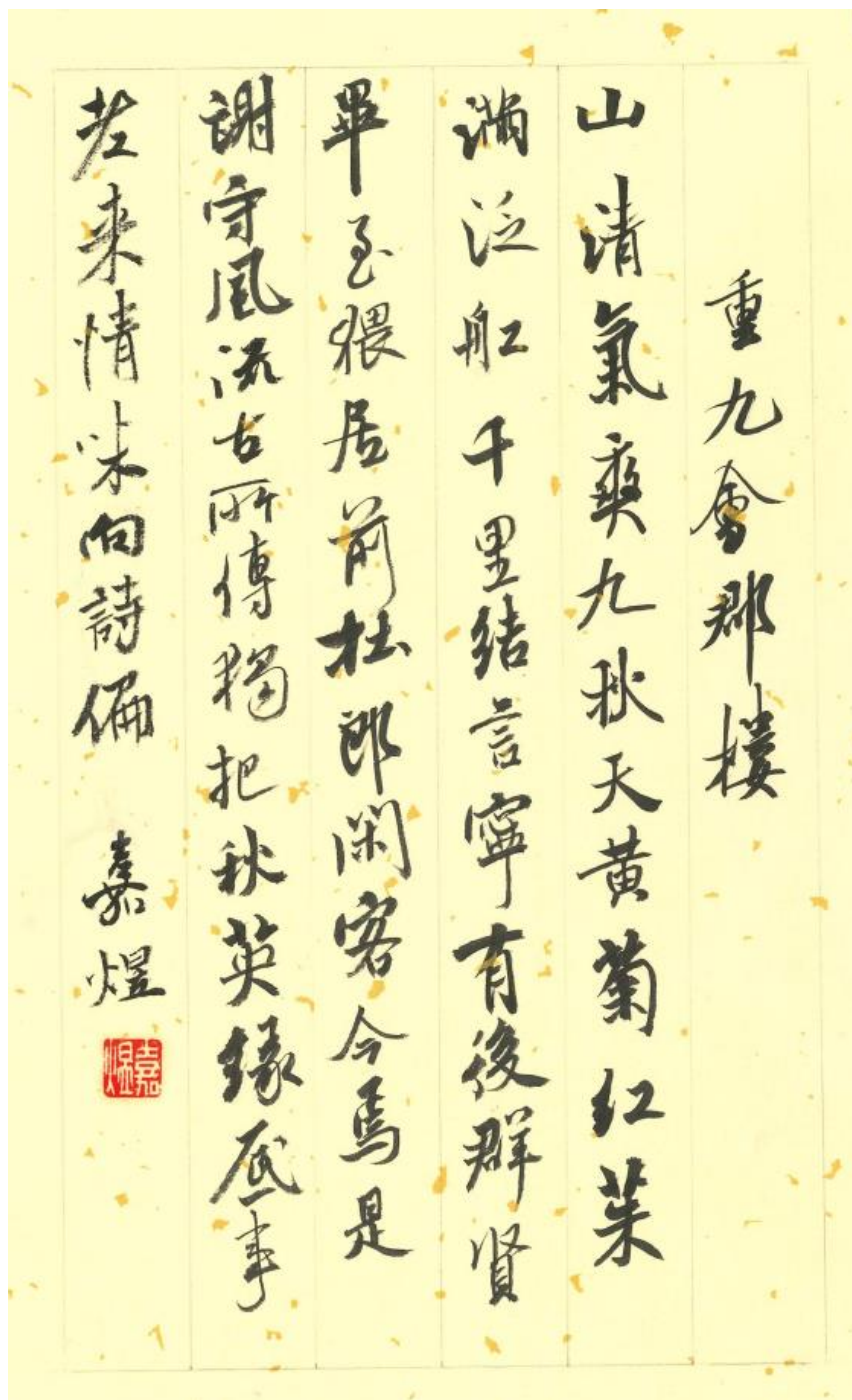 重九會郡樓
山清氣爽九秋天黄菊红茱
满泛舡千里结言寧有後群賢
畢至猥居前杜郎闲客今焉是
謝守風流古所傳獨把秋英緣底事
老来情味向詩偏 嘉煜
嘉煜